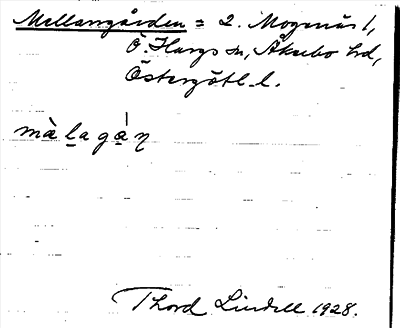 Mellangården = 2. Mogenäs 1,
Ö. Hargs sn, Åkerbo hd,
Östergötl. l.
màḻaga̱̍ŋ
Thord Lindell 1928.